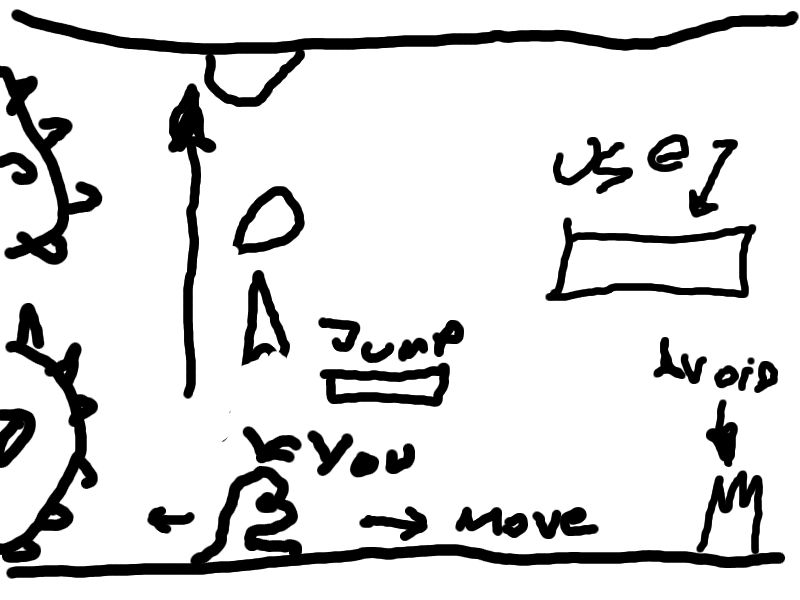 use
Jump
Avoid
You
Move